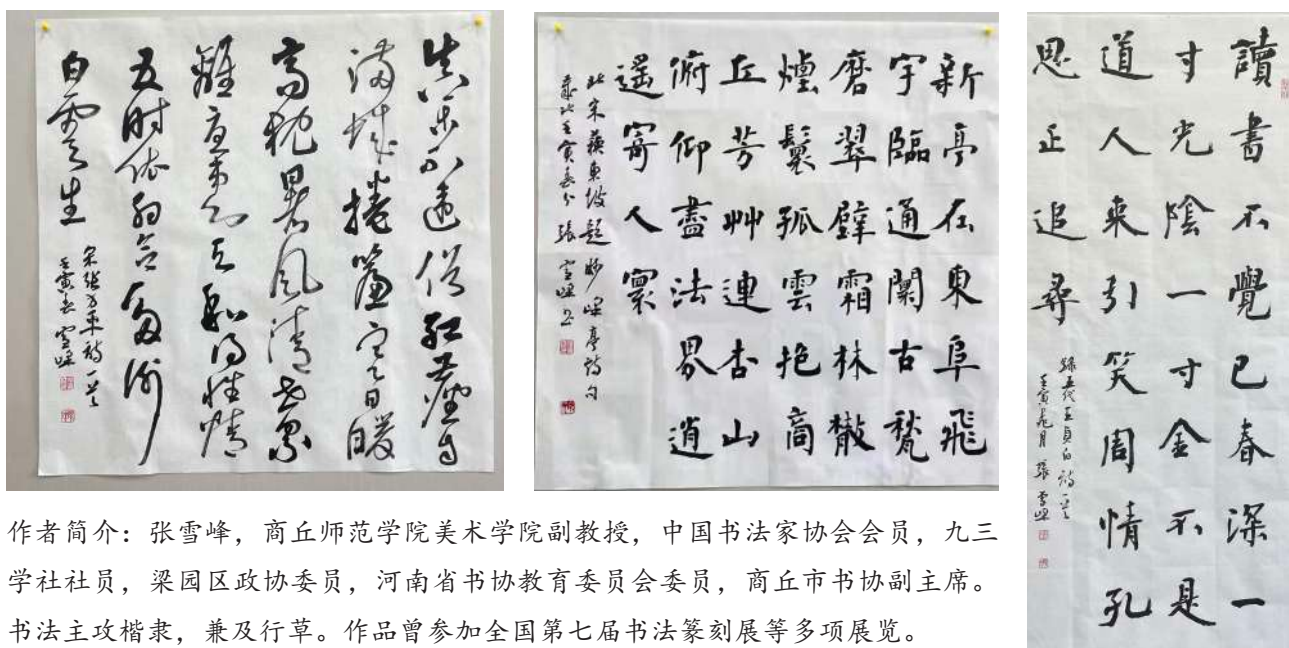 樂不違俗紅塵自
滿城捲簾日暖
高枕暑風清世累
得性情
时依多谢
白雲生
宋張诗一首
壬寅春雪峰
新亭在東阜飛
宇臨通闤古甃
磨翠壁霜林散
煙鬟孤雲抱商
丘芳艸連杏山
俯仰盡法界逍
遥寄人寰
北宋蘇東坡題妙峰亭詩句
歲次壬寅春分張雪峰书
讀書不覺已春深一
寸光陰一寸金不是
道人來引笑周情孔
思正追尋
録五代王貞白詩一首
壬寅花月張雪峰
作者简介：张雪峰，商丘师范学院美术学院副教授，中国书法家协会会员，九三
学社社员，梁园区政协委员，河南省书协教育委员会委员，商丘市书协副主席。
书法主攻楷隶，兼及行草。作品曾参加全国第七届书法篆刻展等多项展览。